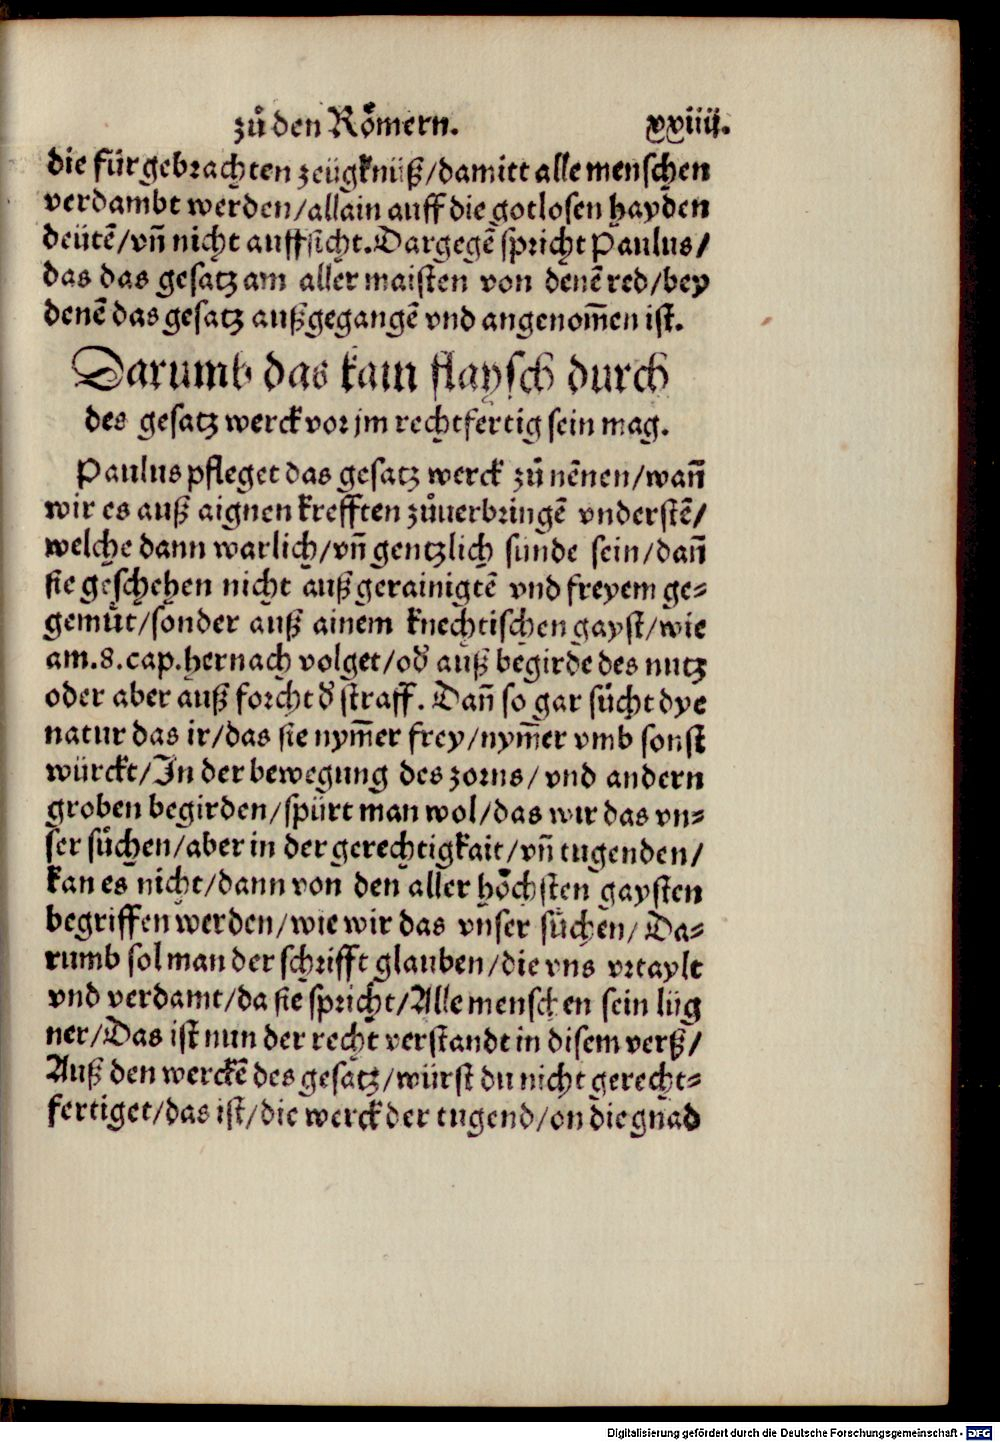 zů den Rŏmern. xxiiij.
die fürgebrachten zeügknüß/damitt alle menschen
verdambt werden/allain auff die gotlosen hayden
deütē/vñ nicht auff sich. Dargegē spricht Paulus/
das das gesatz am aller maisten von denē red/bey
denē das gesatz außgegangē vnd angenom̄en ist.
Darumb das kain flaysch durch
des gesatz werck vor jm rechtfertig sein mag.
Paulus pfleget das gesatz werck zů nēnen/wañ
wir es auß aignen krefften zůuerbringē vnderstē/
welche dann warlich/vñ gentzlich sünde sein/dañ
sie geschehen nicht auß gerainigtē vnd freyem ge-
gemüt/sonder auß ainem knechtischen gayst/wie
am.8.cap.hernach volget/od̄ auß begirde des nutz
oder aber auß forcht d̄ straff. Dañ so gar sůcht dye
natur das ir/das sie nym̄er frey/nym̄er vmb sonst
würckt/In der bewegung des zorns/vnd andern
groben begirden/spürt man wol/das wir das vn-
ser sůchen/aber in der gerechtigkait/vñ tugenden/
kan es nicht/dann von den aller hŏchsten gaysten
begriffen werden/wie wir das vnser sůchen/Da-
rumb sol man der schrifft glauben/die vns vrtaylt
vnd verdamt/da sie spricht/Alle menschen sein lüg
ner/Das ist nun der recht verstandt in disem verß/
Auß den werckē des gesatz/würst du nicht gerecht-
fertiget/das ist/die werck der tugend/on die gnad
Digitalisierung gefördert durch die Deutsche Forschungsgemeinschaft - DFG